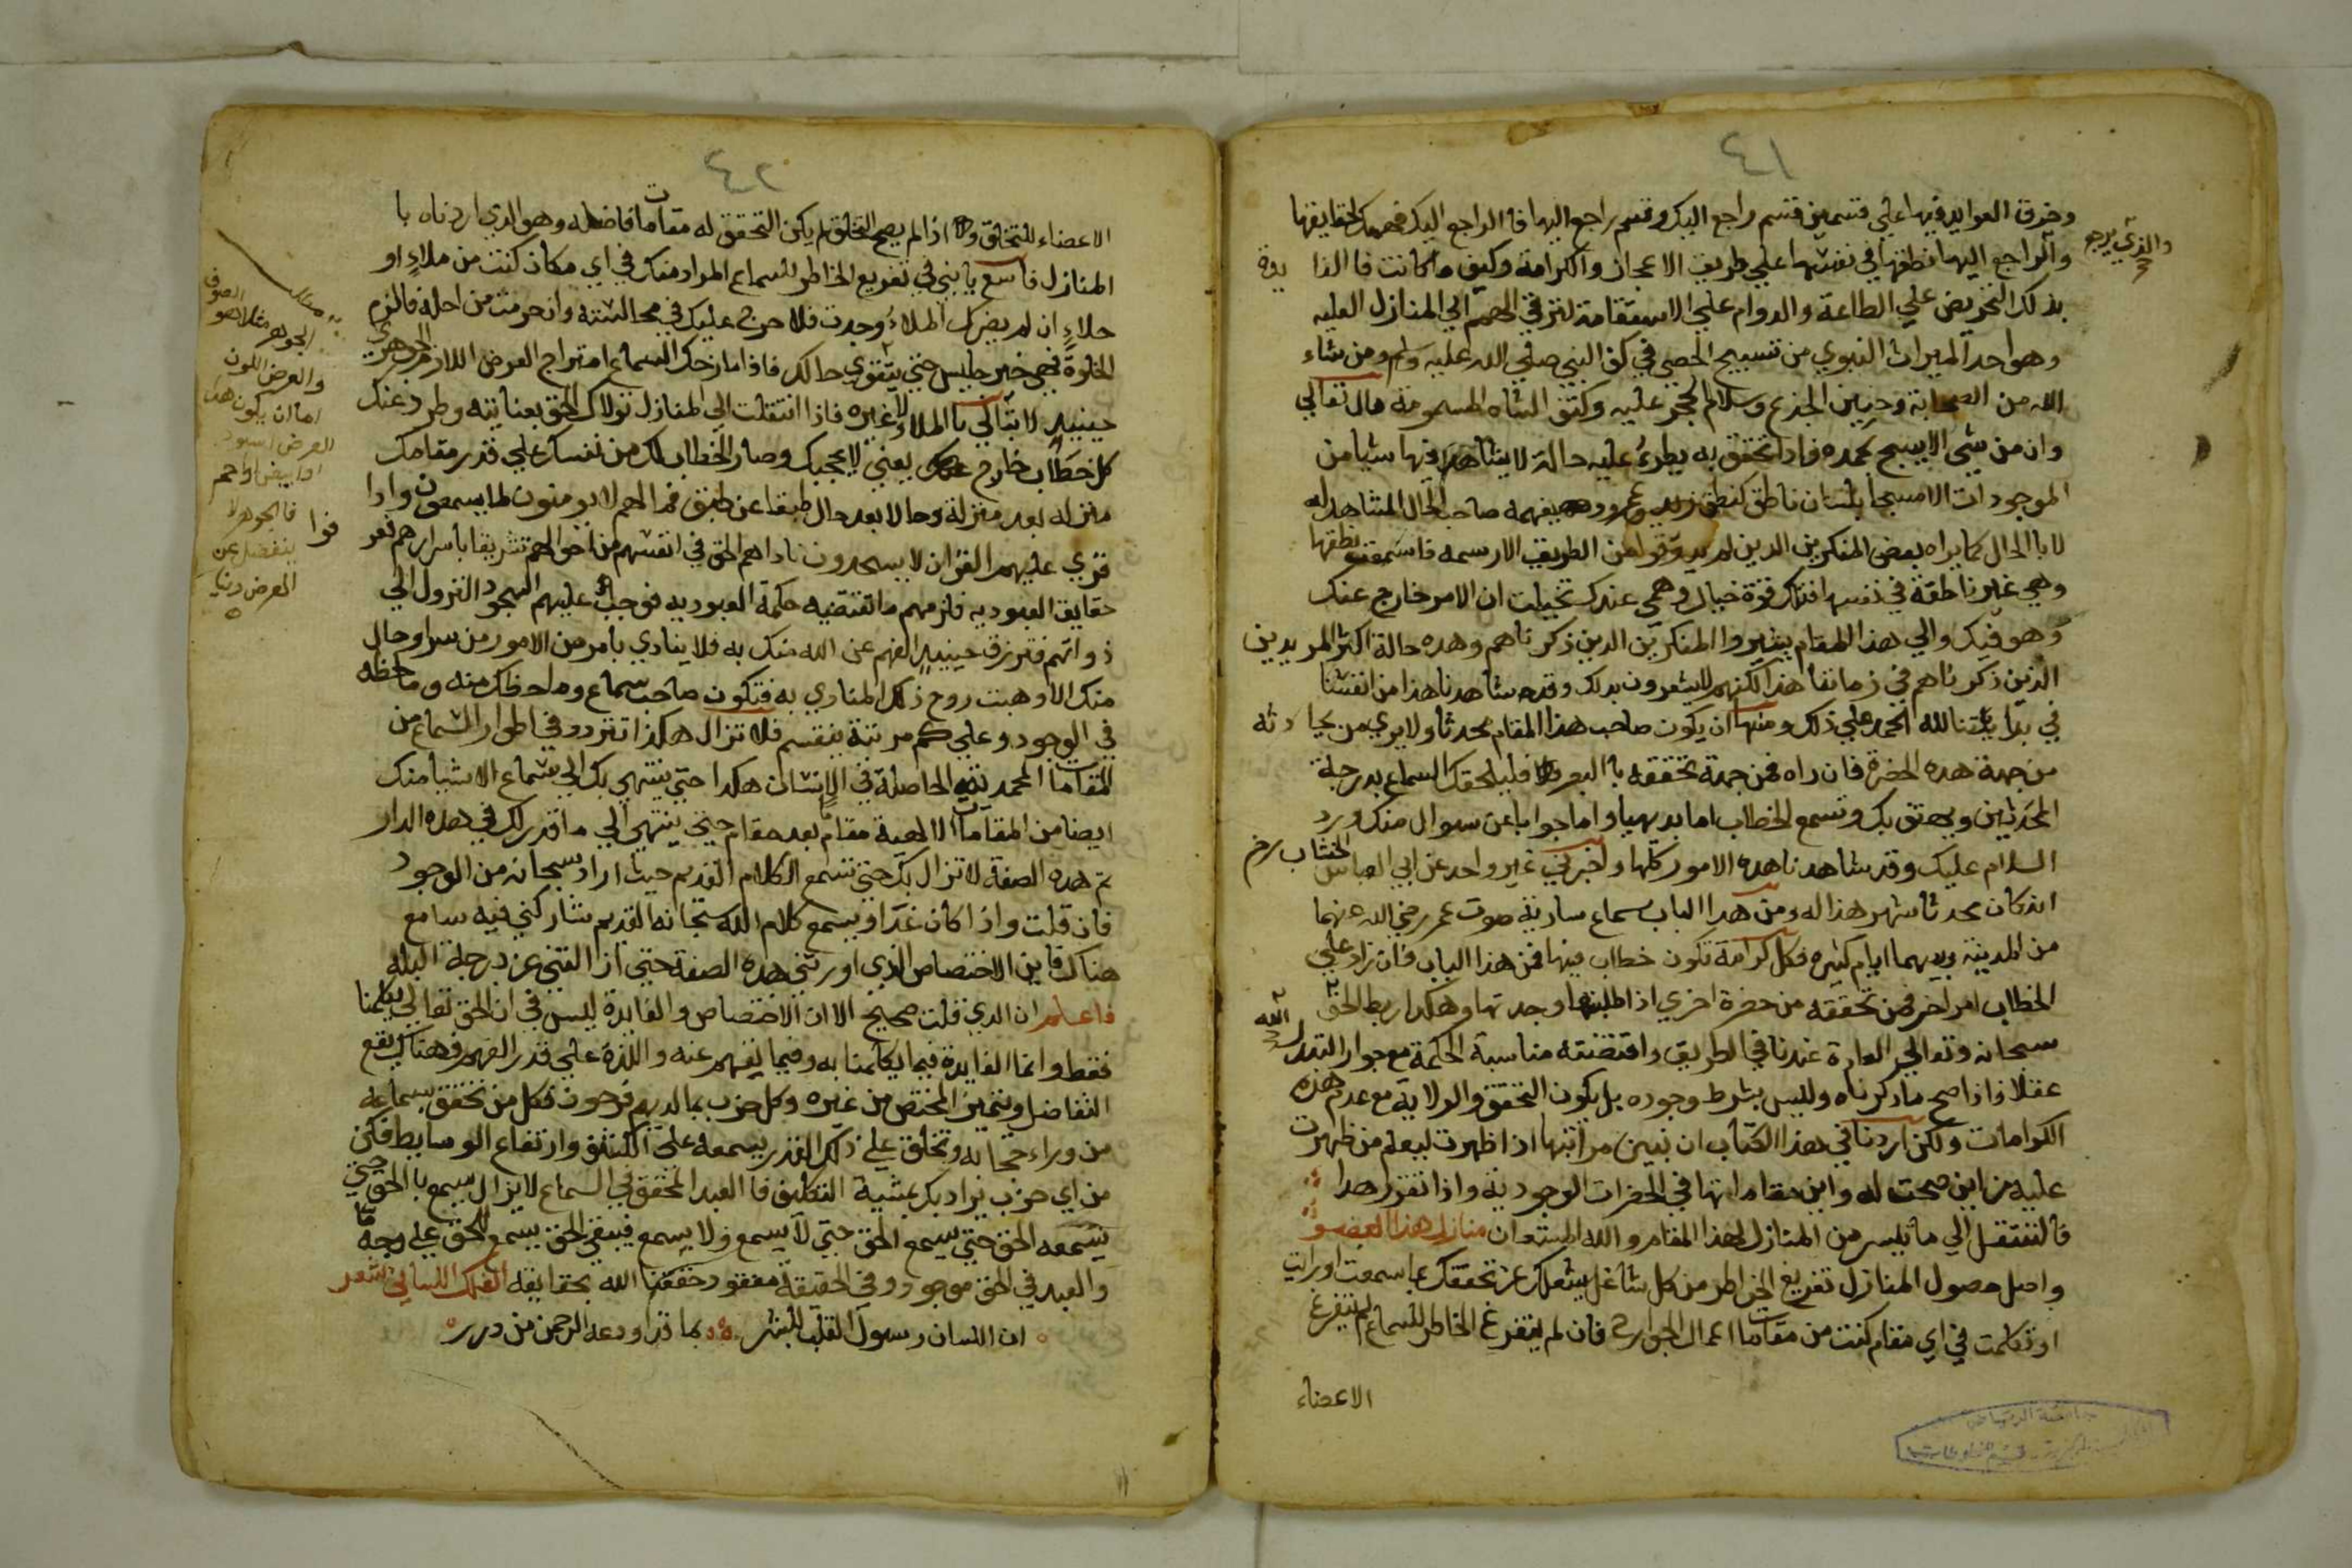 ٤١
وخرق العوايد فيها علي قسمين قسم راجع اليك وقسم راجع اليها فا الراجع اليك فهمك لحقايقها
والذي يرجع
والراجع اليها نطقها في نفسها علي طريق الاعجاز والكرامة وكيف ما كانت فا الفا يدة
بذلك التحريض علي الطاعة والدوام علي الاستقامة لترقي الهمم الي المنازل العليه
وهو احد الميراث النبوي من تسبيح الحصي في كف النبي صلي الله عليه وسلم ومن شاء
الله من الصحابة وحنين الجذع وسلام الحجر عليه وكتف الشاه المسمومة قال تعالي
وان من شي الا يسبح بحمده فاذا تحقق به يطرءُ عليه حالة لا يشاهد فيها شيا من
الموجودات الا مسبحا بلسان ناطق كنطق زيد وعمرو يفهمه صاحب الحال المشاهد له
لا با الحال كما يراه بعض المنكرين الذين لم يذوقوا من الطريق الا رسمه فاسمعت نطقها
وهي غير ناطقة في نفسها فتلك قوة خيال وهمي عندك تخيلت ان الامر خارج عنك
وهو فيك والي هذا المقام يشيروا المنكرين الذين ذكرناهم وهذه حالة اكثر المريدين
الذين ذكرناهم في زماننا هذا لكنهم لا يشعرون بذلك وقد شاهدنا هذا من انفسنا
في بدايتنا لله الحمد علي ذلك ومنها ان يكون صاحب هذا المقام محدثا ولا يري من يحادثه
من جهة هذه الحضرة فان راه فمن جهة تحققه با البصر فليلحقك السماع بدرجة
المحدثين ويهتف بك وتسمع الخطاب اما بديهيا واما جوابا عن سوال منك ورد
السلام عليك وقد شاهدنا هذه الامور كلها واخبرني غير واحد عن ابي العباس الخشاب رضي
انه كان محدثا شهر هذا له ومن هذا الباب سماع سارية صوت عمر رضي الله عنهما
من المدينة وبينهما ايام كثيره فكل كرامة تكون خطاب فيها فمن هذا الباب فان زاد علي
الخطاب امر اخر فمن تحققه من حضرة اخري اذا طلبتها وجدتها وهكذا ربط الحق
سبحانه وتعالي العادة عندنا في الطريق واقتضته مناسبة الحكمة مع جواز التبدل
عقلا فاذا صح ما ذكرناه وليس بشرط وجوده بل يكون التحقق والولاية مع عدم هذه
الكرامات ولكن اردنا في هذا الكتاب ان نبين مراتبها اذا ظهرت ليعلم من ظهرت
عليه من اين صحت له واين مقاماتها في الحضرات الوجودية واذا تقرر هذا
فالننتقل الي ما تيسر من المنازل لهذا المقام والله المستعان منازل هذا العضو
واصل حصول المنازل تفريغ الخواطر من كل شاغل يشغلك عن تحققك بما سمعت او رايت
او تكلمت في اي مقام كنت من مقامات اعمال الجوارح فان لم يتفرغ الخاطر للسماع لم تتفرغ
الاعضاء
٤٢
الاعضاء للتخلق واذا لم يصح التخلق لم يكن التحقق له مقاما فاضله وهو الذي اردناه با
المنازل فاسع يا بني في تفريغ الخاطر لسماع المراد منك في اي مكان كنت من ملاءٍ او
خلاءٍ ان لم يضرك الملاءُ وجدت فلا حرج عليك في مجالسته وان حرمت من اجله فالزم
الخلوة فهي خير جليس حتي يتقوي حالك فاذا مازحك السماع امتزاج العرض اللازم الجوهري
حينيذ لا تبالي با الملاءِ ولا غيره فاذا انتقلت الي المنازل تولاك الحق بعنايته وطرد عنك
كل خطاب خارج عنك يعني لا يحجبك وصار الخطاب لك من نفسك علي قدر مقامك
منزله بعد منزلة وحالا بعد حال طبقا عن طبق فما لهم لا يومنون لما يسمعون واذا
قري عليهم القران لا يسجدون ناداهم الحق في انفسهم من احوالهم تشريفا باسرارهم
حقايق العبودية فلزمهم ما تقتضيه حكمة العبودية فوجب عليهم السجود النزول الي
ذواتهم فترزق حينيذٍ الفهم عن الله منك به فلا ينادي بامر من الامور من سر او حال
منك الا وهبت روح ذلك المنادي به فتكون صاحب سماع وملاحظك منه وما حظه
في الوجود وعلي كم مرتبة ينقسم فلا تزال هكذا تتردد في اطوار السماع من
المقامات المحمدية الحاصلة في الانسان هكذا حتي ينتهي بك الي سماع الاشيا منك
ايضا من المقامات الالهية مقام بعد مقام حتي ينتهي الي ما قدر لك في هذه الدار
ثم هذه الصفة لا تزال بك حتي تسمع الكلام القديم حيث اراد سبحانه من الوجود
فان قلت واذا كان غدا ويسمع كلام الله سبحانه القديم شاركني فيه سامع
هناك فاين الاختصاص الذي اورثتني هذه الصفة حتي اذا الفتني عن درجة البله
فاعلم ان الذي قلت صحيح الا ان الاختصاص والفايدة ليس في ان الحق تعالي يكلمنا
فقط وانما الفايدة فيما يكلمنا به وفيما يفهم عنه واللذة علي قدر الفهم فهناك يقع
التفاضل ويتميز المختص من غيره وكل حزب بما لديهم فرحون فكل من تحقق بسماعه
من وراء حجابه وتخلق علي ذلك القدر يسمعه علي الكشف وارتفاع الوسايط فكن
من اي حزب يراد بك عشية التكليف فا العبد المحقق في السماع لا يزال يسمع با الحق حتي
يسمعه الحق حتي يسمع الحق حتي لا يسمع ولا يسمع فيبقي الحق يسمع الحق علي وجه ما
والعبد في الحق موجود وفي الحقيقة مفقود حققنا الله بحقايقه الفلك اللساني شعر
ان اللسان رسول القلب للبشر بما قد اودعه الرحمن من درر
الجوهر مثلا هو الصوف
والعرض اللون
اما ان يكون هذا
العرض اسود
او ابيض او احمر
فا الجوهر لا
ينفصل عن
العرض دنيا